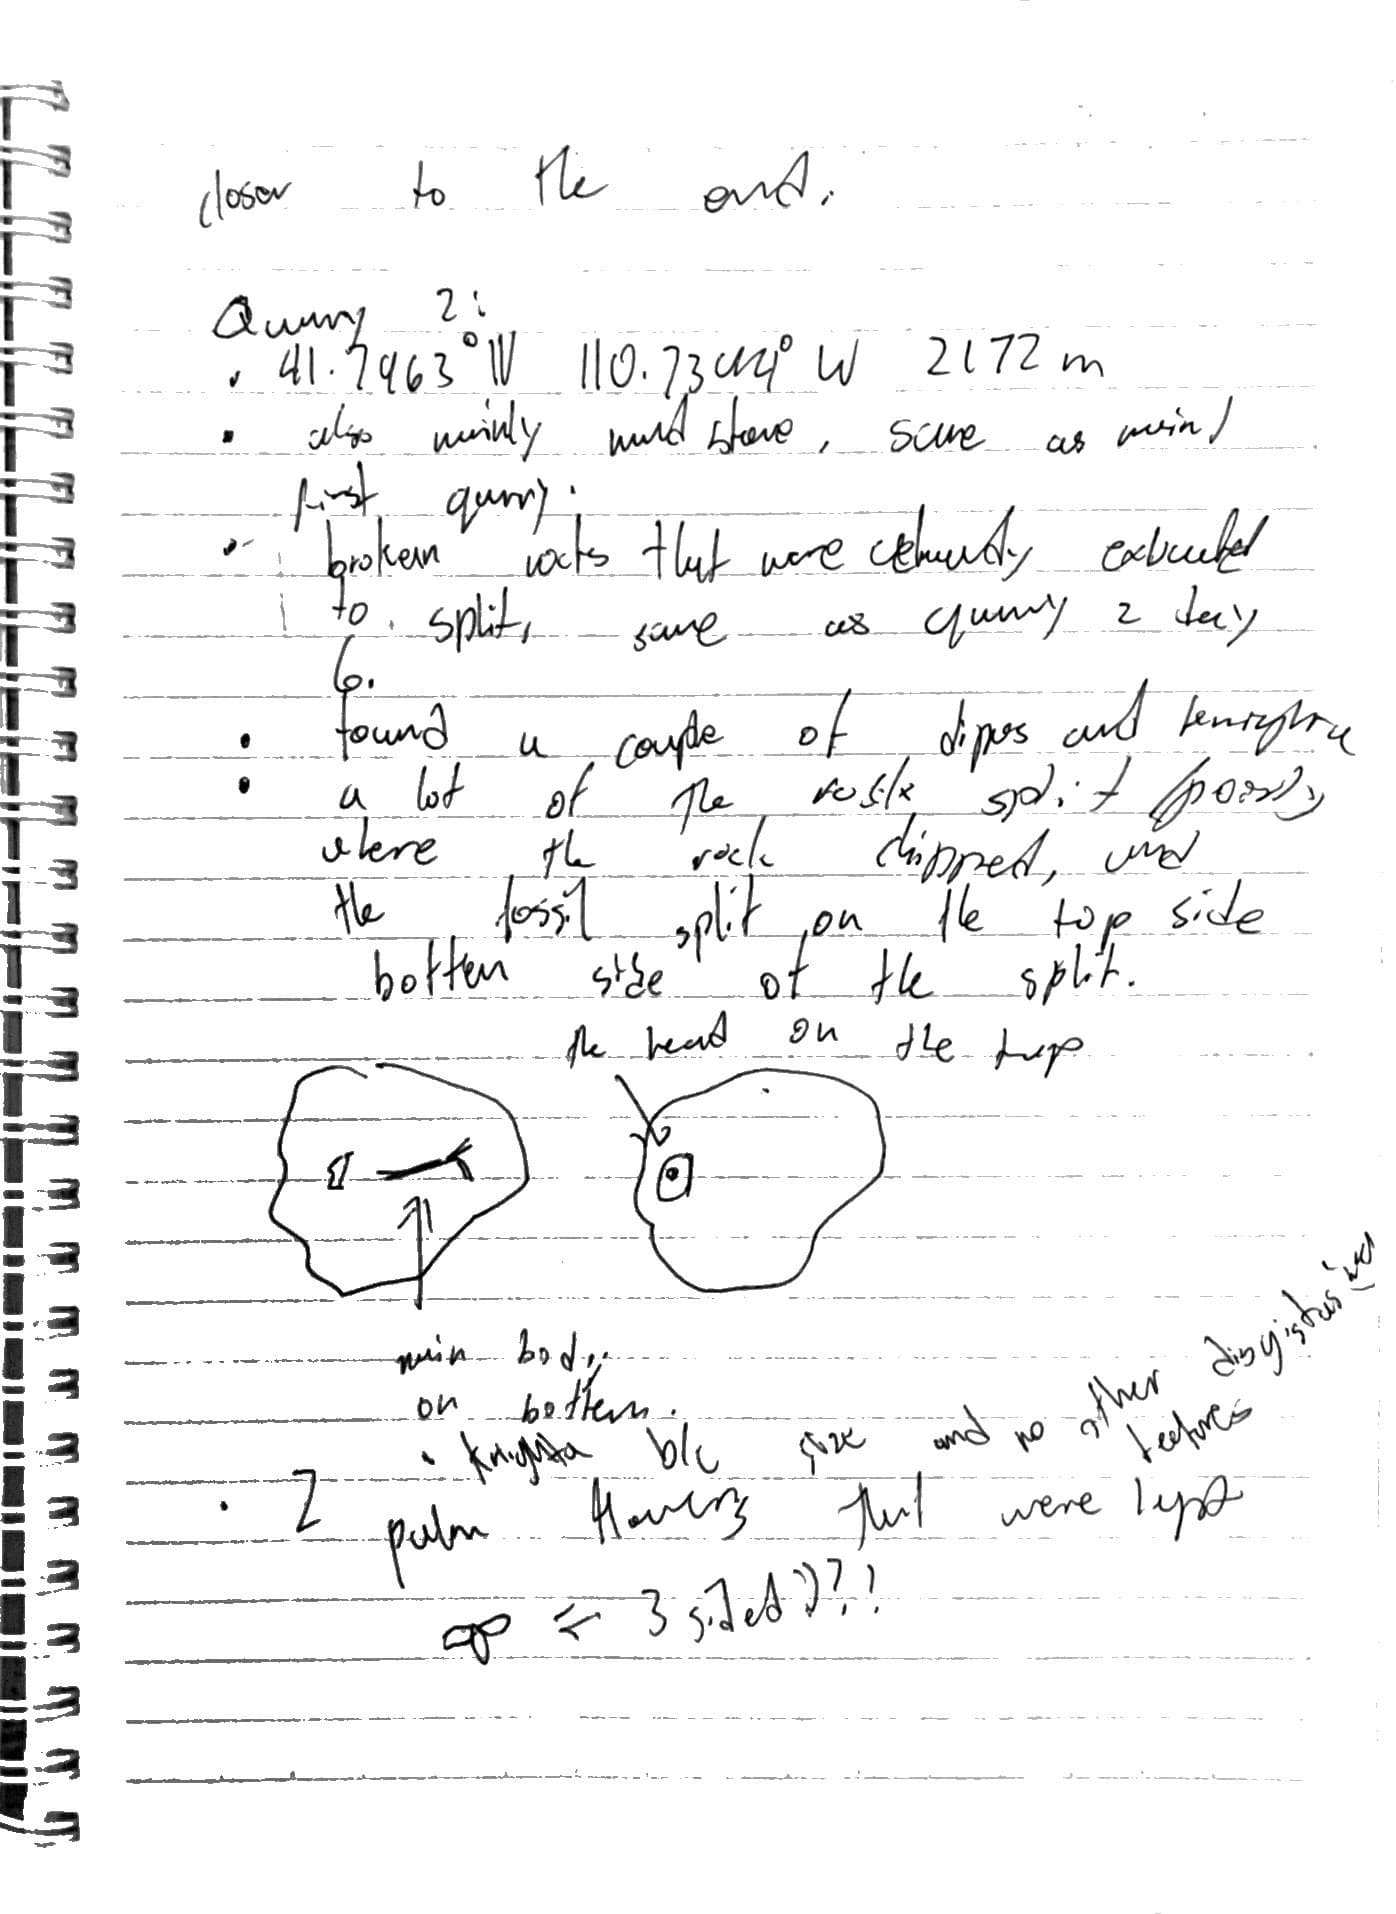 closer to the end.
Quarry 2:
• 41.7963°N 110.7344° W 2172 m
• also mainly mudstone, same as main/
first quarry.
• broken rocks that were already
to split, same as quarry 2 day
6.
• found a couple of and
• a lot of the split
where the rock chipped, and
the fossil split on the top side
bottem side of the split.
the head on the top
main body
on bottem.
• knightia b/c size and no other
features
• 2 palm flowers that were
= 3 sided)?!